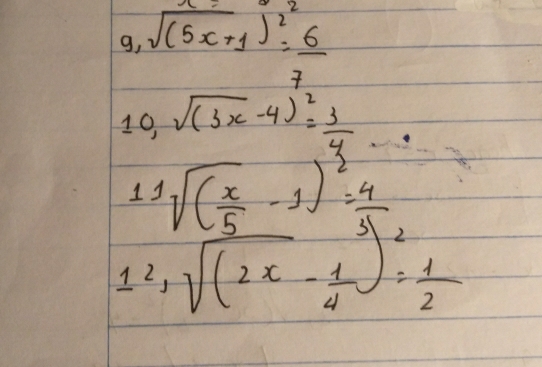 9, √(5x+1)² = 6/7
10, √(3x-4)² = 3/4
11 √(x/5 - 1)² = 4/3
12, √(2x - 1/4)² = 1/2